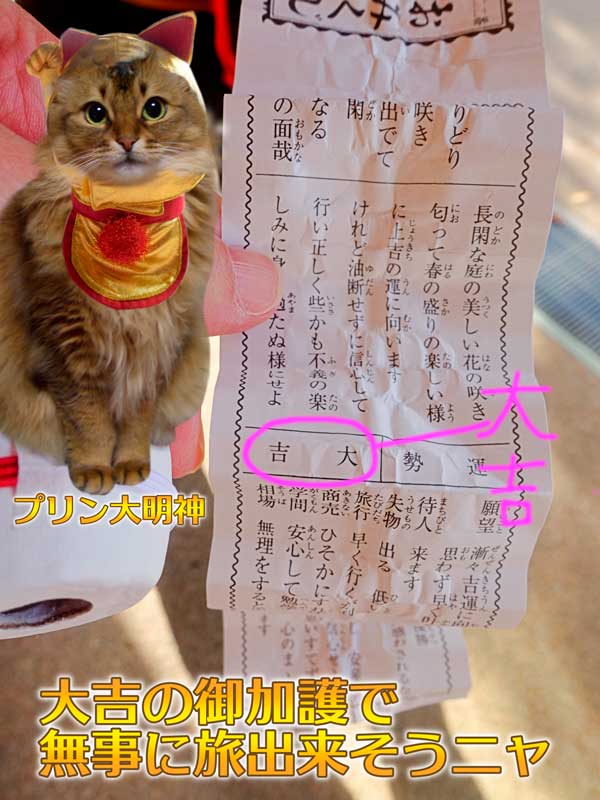 りどり
咲き
出でて
閑
なる
の面哉
長閑な庭の美しい花の咲き
匂って春の盛りの楽しい様
に上吉の運に向います
けれど油断せずに信心して
行い正しく些かも不義の楽
しみに たぬ様にせよ
運勢
大吉
大吉
願望 漸々吉運に
思わず早
待人 来ます
失物 出る 低
旅行 早く行く
商売 ひそかにす
学問 安心して
相場 無理をすると
プリン大明神
大吉の御加護で
無事に旅出来そうニャ